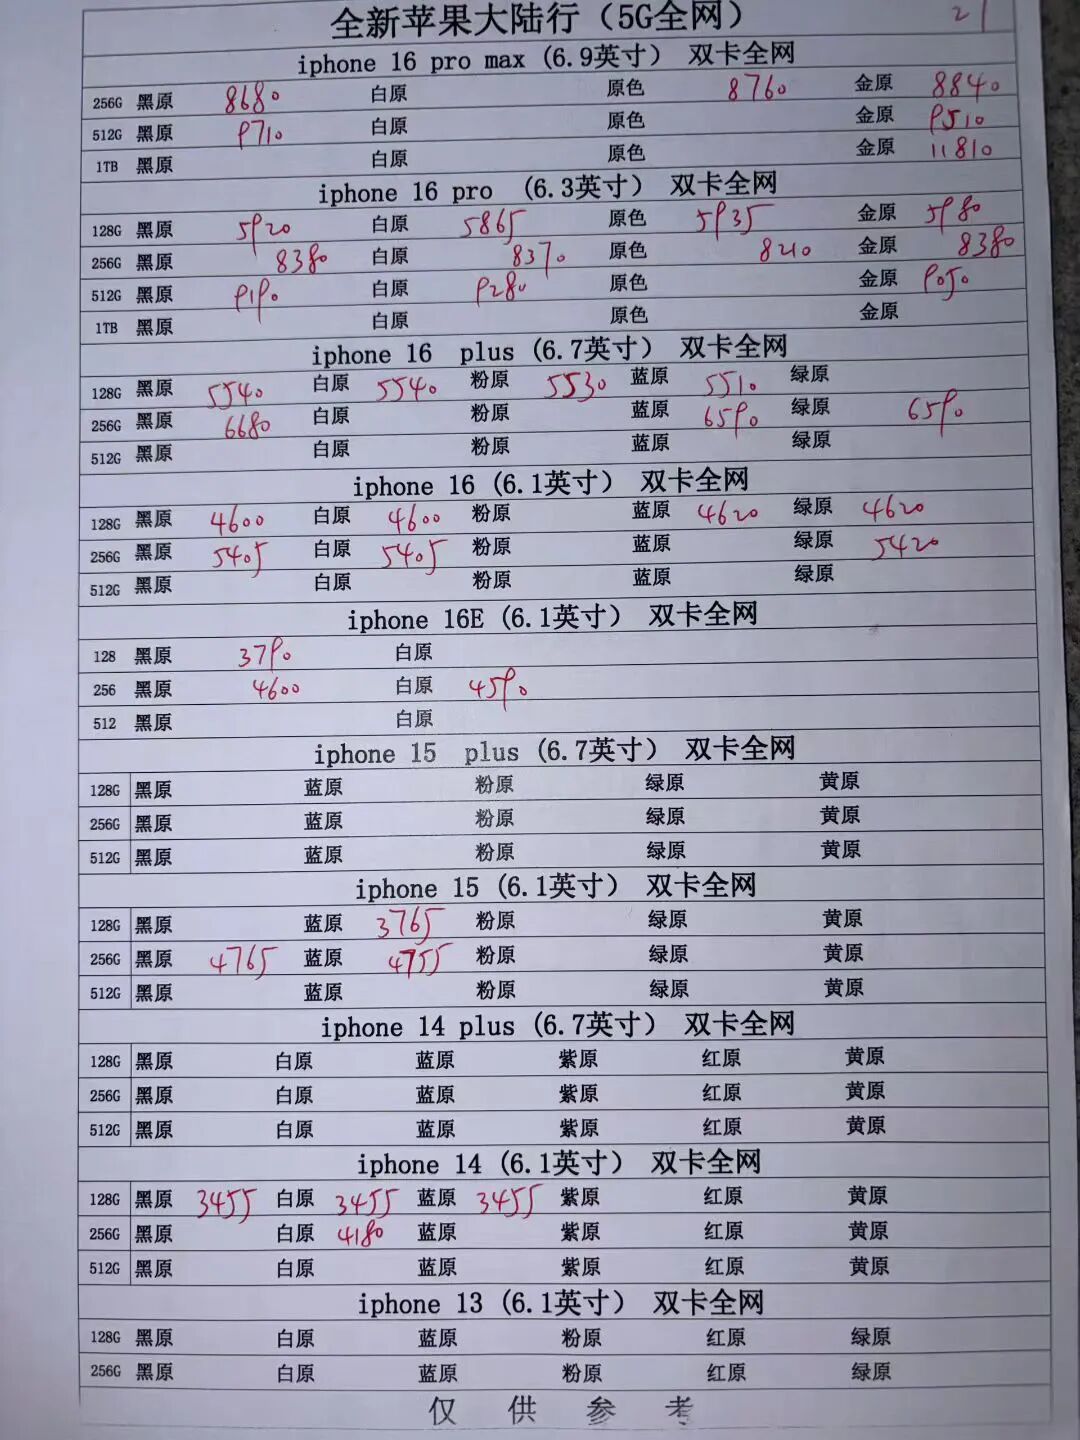 全新苹果大陆行（5G全网） 21
iphone 16 pro max (6.9英寸） 双卡全网
256G 黑原 8680 白原 原色 8760 金原 8840
512G 黑原 9710 白原 原色 金原 9510
1TB 黑原 白原 原色 金原 11810
iphone 16 pro （6.3英寸） 双卡全网
128G 黑原 5920 白原 5865 原色 5935 金原 5980
256G 黑原 8380 白原 8370 原色 8210 金原 8380
512G 黑原 9190 白原 9280 原色 金原 9050
1TB 黑原 白原 原色 金原
iphone 16 plus (6.7英寸） 双卡全网
128G 黑原 5540 白原 5540 粉原 5530 蓝原 5510 绿原
256G 黑原 6680 白原 粉原 蓝原 6590 绿原 6590
512G 黑原 白原 粉原 蓝原 绿原
iphone 16 (6.1英寸） 双卡全网
128G 黑原 4600 白原 4600 粉原 蓝原 4620 绿原 4620
256G 黑原 5405 白原 5405 粉原 蓝原 绿原 5420
512G 黑原 白原 粉原 蓝原 绿原
iphone 16E (6.1英寸） 双卡全网
128 黑原 3790 白原
256 黑原 4600 白原 4590
512 黑原 白原
iphone 15 plus (6.7英寸） 双卡全网
128G 黑原 蓝原 粉原 绿原 黄原
256G 黑原 蓝原 粉原 绿原 黄原
512G 黑原 蓝原 粉原 绿原 黄原
iphone 15 (6.1英寸） 双卡全网
128G 黑原 蓝原 3765 粉原 绿原 黄原
256G 黑原 4765 蓝原 4755 粉原 绿原 黄原
512G 黑原 蓝原 粉原 绿原 黄原
iphone 14 plus (6.7英寸） 双卡全网
128G 黑原 白原 蓝原 紫原 红原 黄原
256G 黑原 白原 蓝原 紫原 红原 黄原
512G 黑原 白原 蓝原 紫原 红原 黄原
iphone 14 (6.1英寸） 双卡全网
128G 黑原 3455 白原 3455 蓝原 3455 紫原 红原 黄原
256G 黑原 白原 4180 蓝原 紫原 红原 黄原
512G 黑原 白原 蓝原 紫原 红原 黄原
iphone 13 (6.1英寸） 双卡全网
128G 黑原 白原 蓝原 粉原 红原 绿原
256G 黑原 白原 蓝原 粉原 红原 绿原
仅供参考